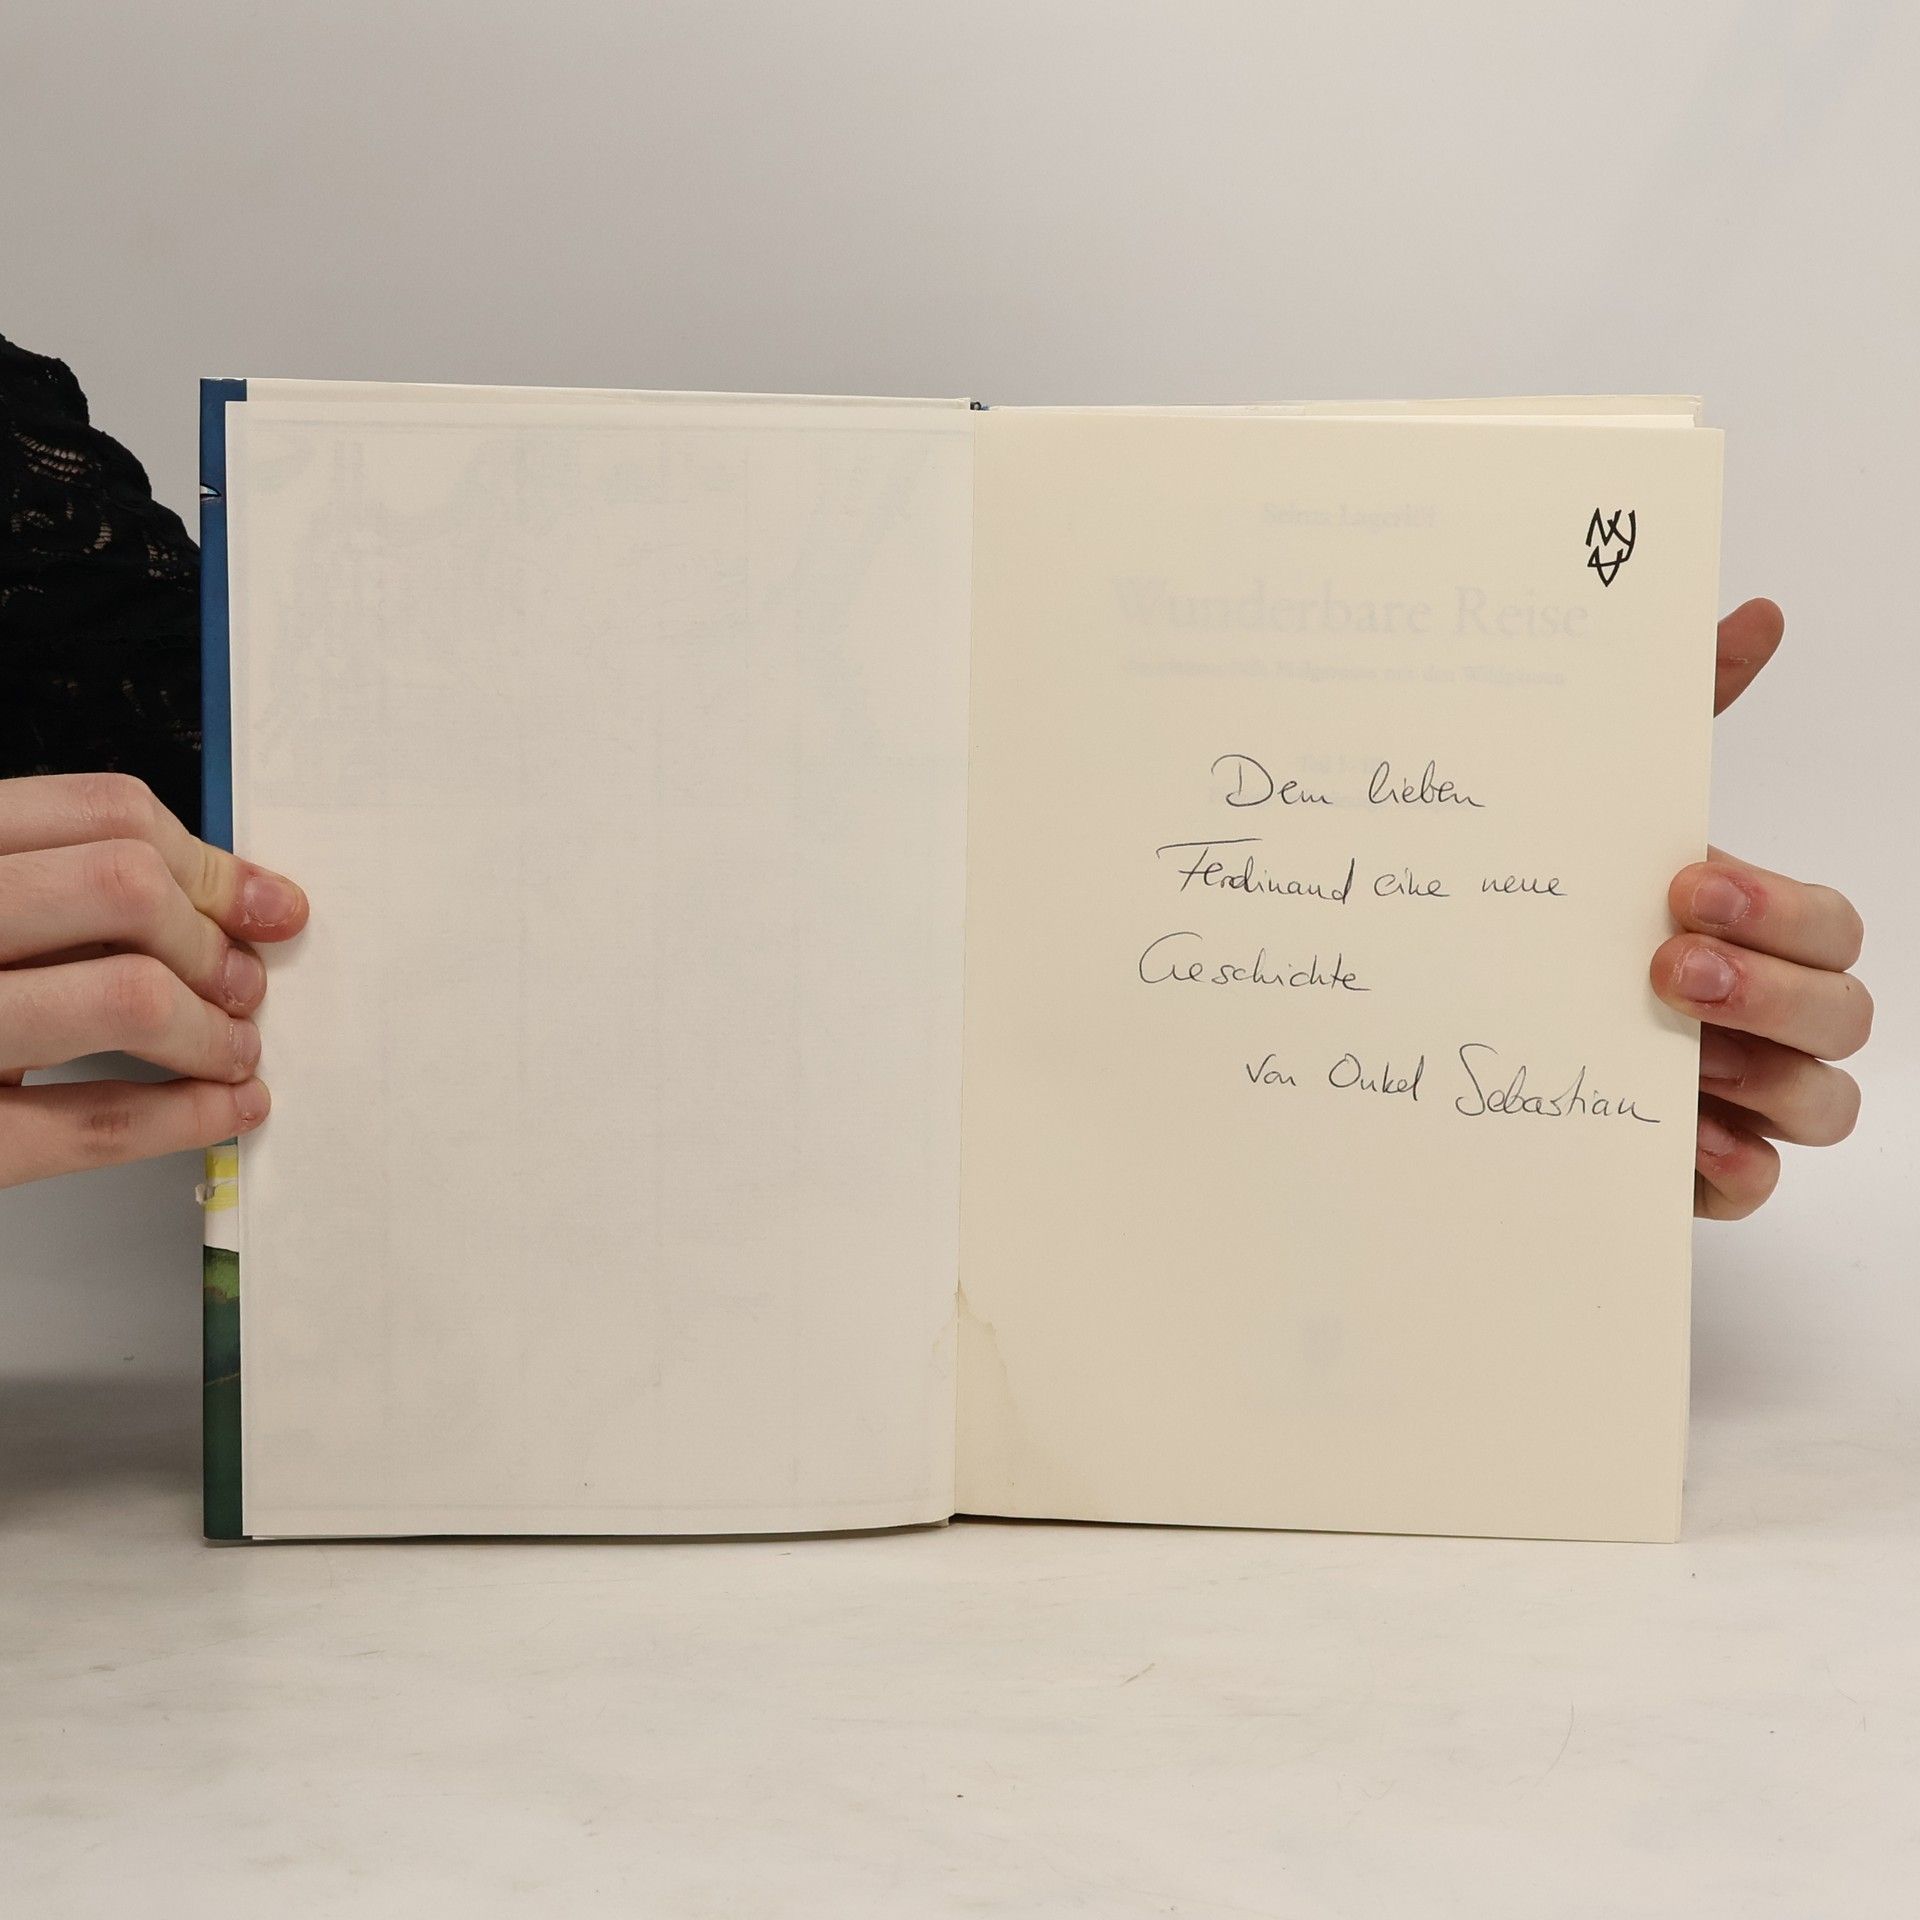 Selma Lagerlöf
Wunderbare Reise
Dem lieben
Ferdinand eine neue
Geschichte
von Onkel Sebastian